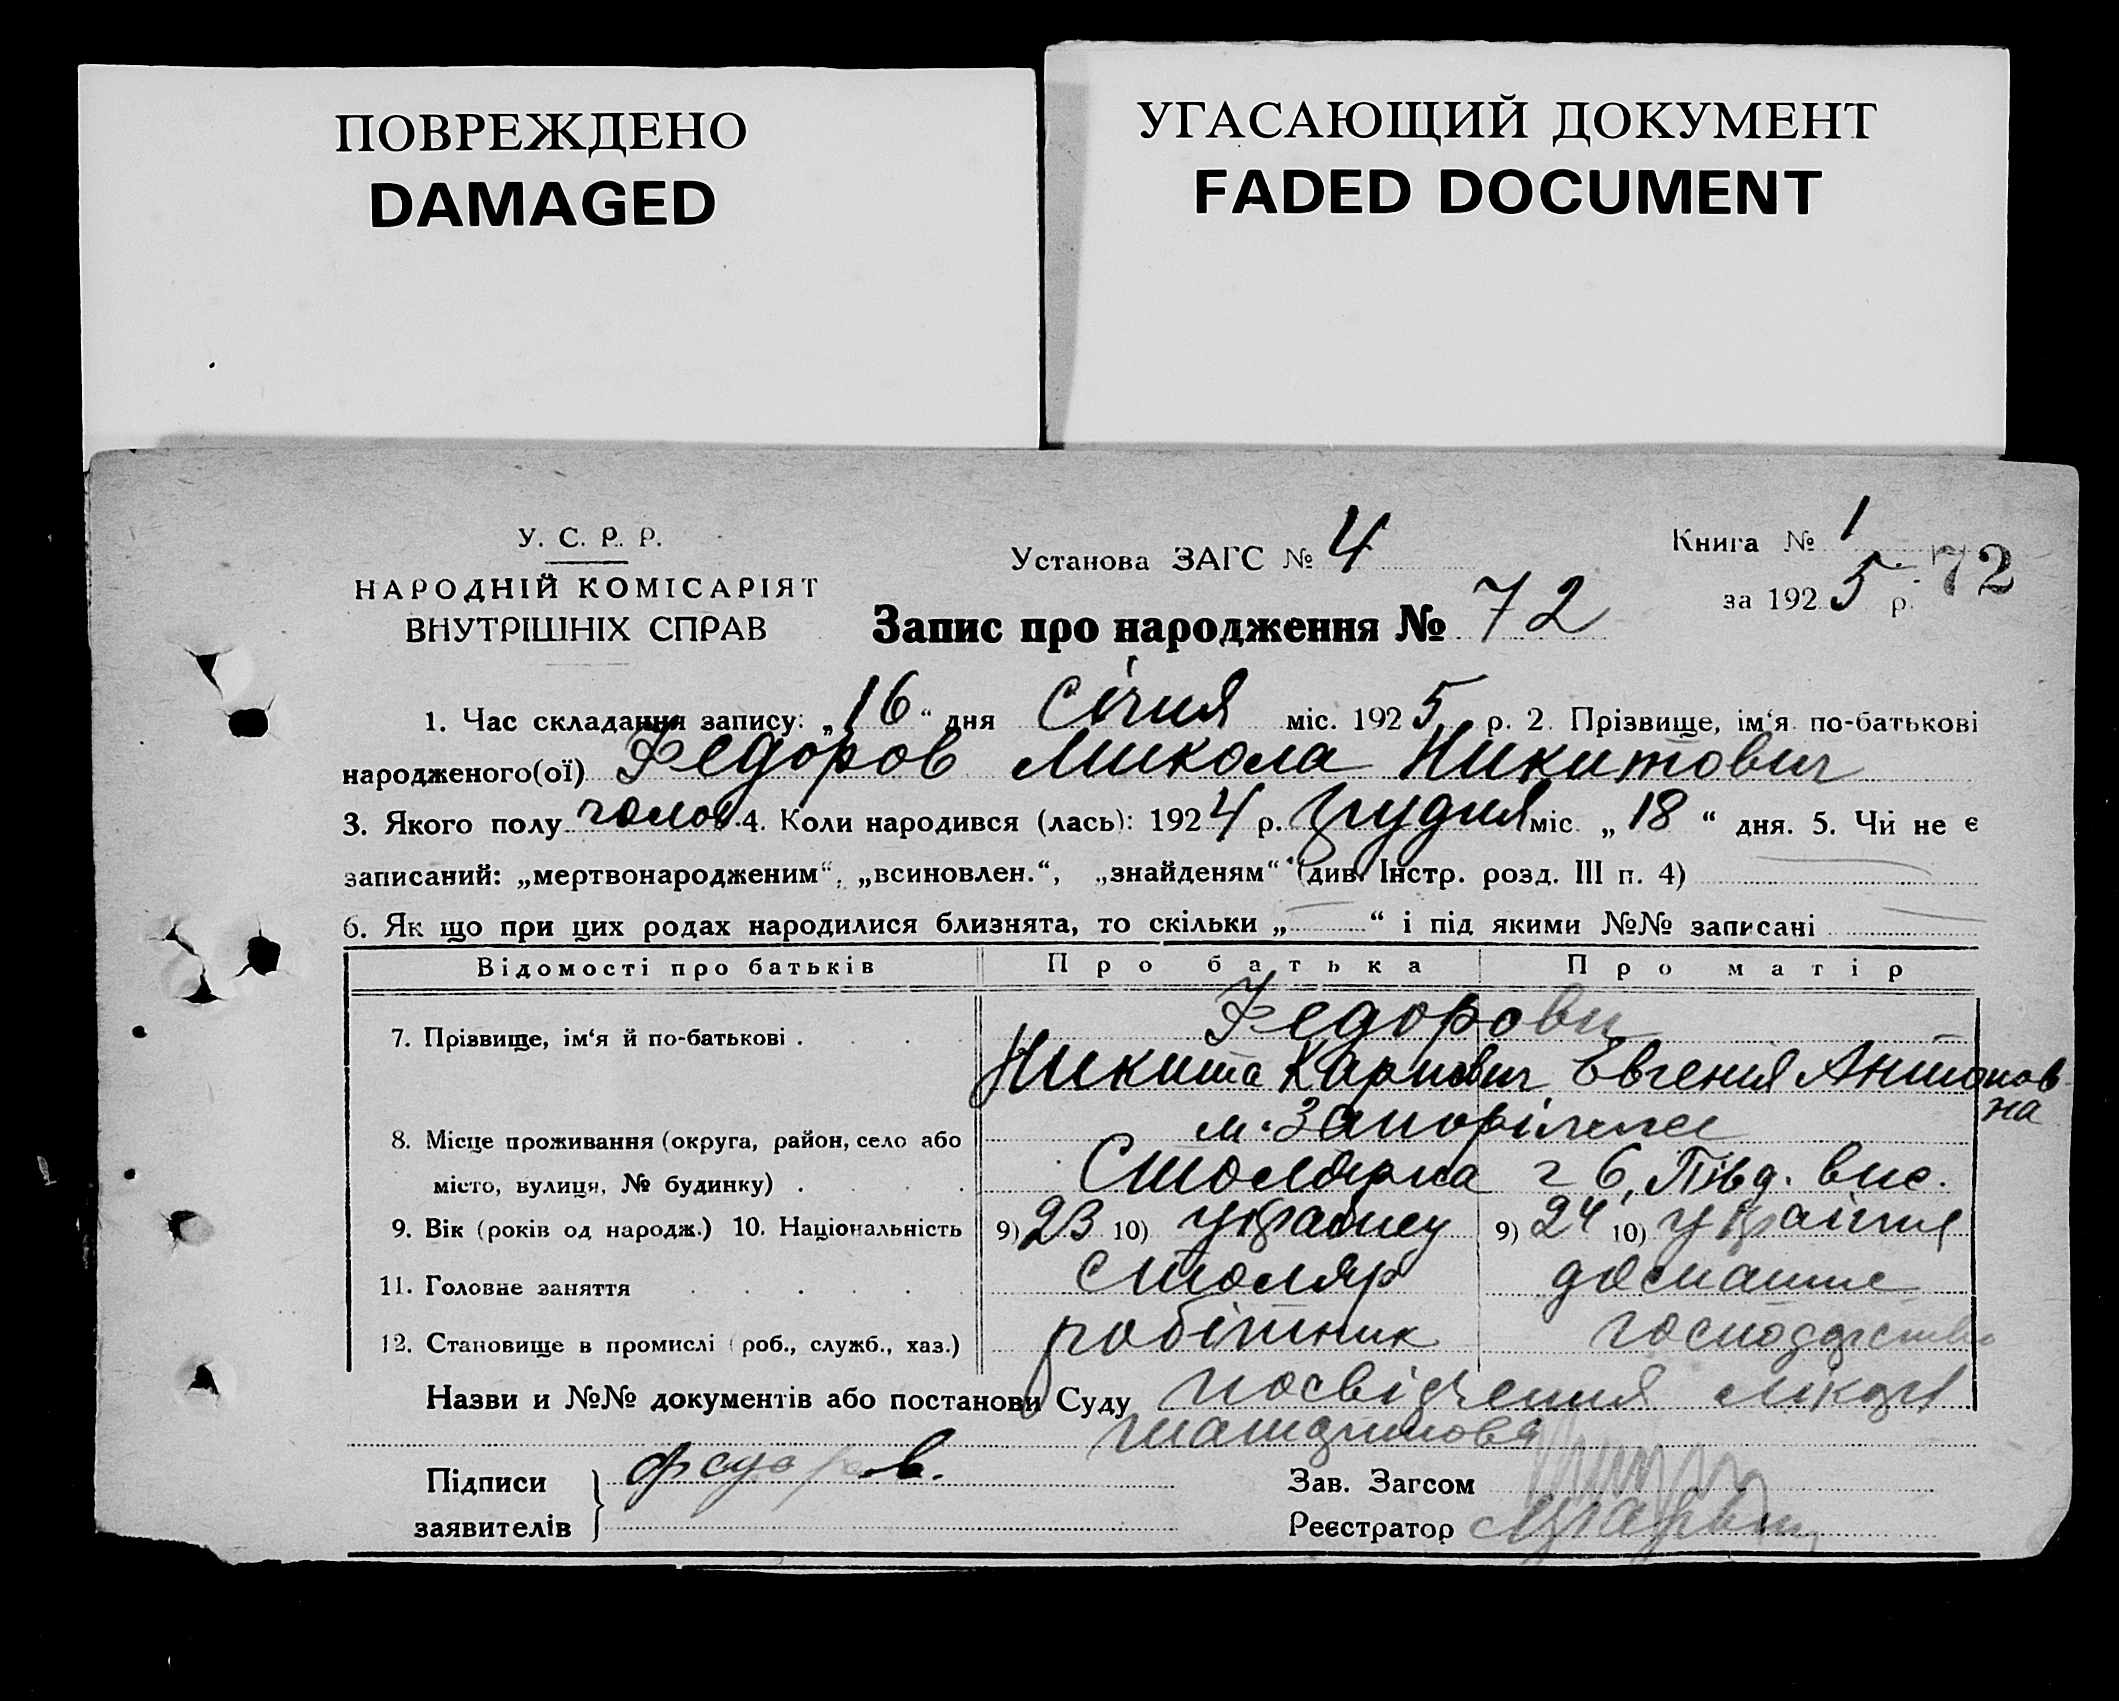 ПОВРЕЖДЕНО
DAMAGED
УГАСАЮЩИЙ ДОКУМЕНТ
FADED DOCUMENT
У. С. Р. Р.
НАРОДНІЙ КОМІСАРІЯТ
ВНУТРІШНІХ СПРАВ
Установа ЗАГС № 4
Запис про народження № 72
Книга № 1
за 1925 р. 72
1. Час складання запису: „16“ дня Січня міс. 1925 р. 2. Прізвище, ім‘я по-батькові
народженого(ої) Федоров Микола Никитович
3. Якого полу чолов. 4. Коли народився (лась): 1924 р. Грудня міс. „18“ дня. 5. Чи не є
записаний: „мертвонародженим“, „всиновлен.“, „знайденям“ (див. Інстр. розд. III п. 4)
6. Як що при цих родах народилися близнята, то скільки „ “ і під якими №№ записані
Відомості про батьків Про батька Про матір
7. Прізвище, ім‘я й по-батькові . Федорови
Никита Карпович Евгенія Антонов
на
8. Місце проживання (округа, район, село або м. Запоріжжя
місто, вулиця, № будинку) . Столярна 6, Півд. вис.
9. Вік (років од народж.) 10. Національність 9) 23 10) 9) 24 10)
11. Головне заняття столяр домашнє
12. Становище в промислі (роб., служб., хаз.) робітник господарство
Назви и №№ документів або постанови Суду посвідчення лікаря
Підписи
заявителів Федоров.
Зав. Загсом
Реєстратор